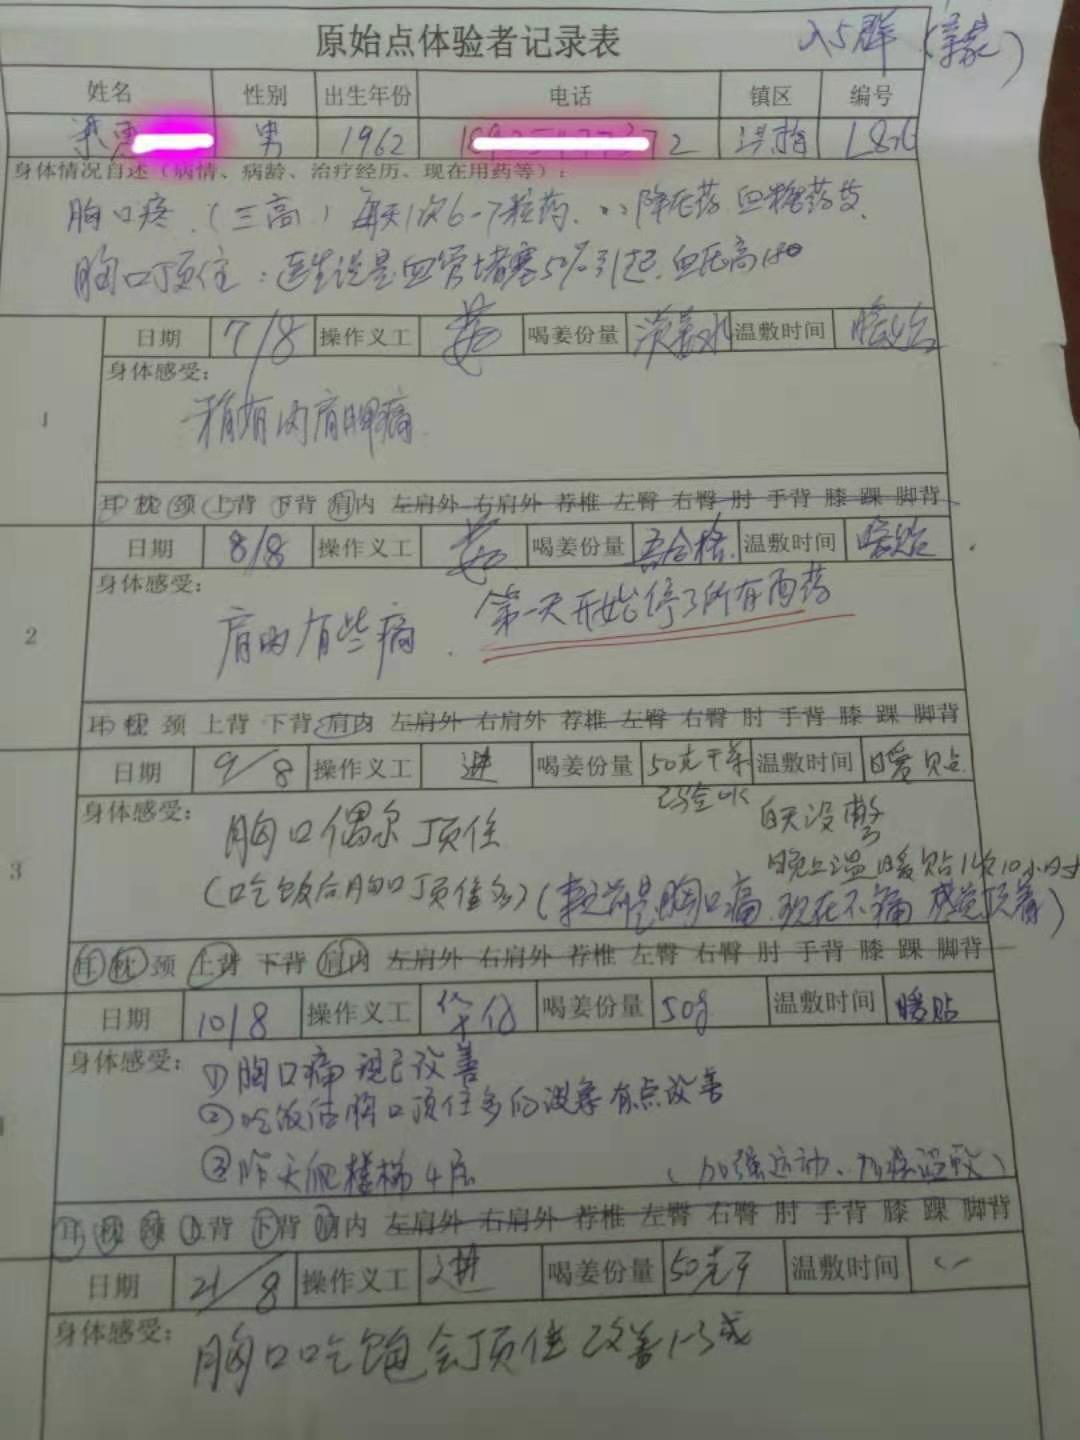 原始点体验者记录表 入5群
姓名 性别 出生年份 电话 镇区 编号
男 1962 2 洪梅
身体情况自述（病情、病龄、治疗经历、现在用药等）：
胸口疼.（三高）每天1次6-7粒药. 降压药 血糖药
胸口顶住：医生说是血管堵塞50%引起.血压高180
1
日期 7/8 操作义工 喝姜份量 淡姜水 温敷时间 暖贴
身体感受：
稍有肩内胛痛.
耳 枕 颈 上背 下背 肩内 左肩外 右肩外 荐椎 左臀 右臀 肘 手背 膝 踝 脚背
2
日期 8/8 操作义工 喝姜份量 温敷时间 暖贴
身体感受：
肩内有些痛. 第一天开始停了所有西药
耳 枕 颈 上背 下背 肩内 左肩外 右肩外 荐椎 左臀 右臀 肘 手背 膝 踝 脚背
3
日期 9/8 操作义工 进 喝姜份量 50克干姜 温敷时间 暖贴
已验ok
身体感受：
胸口偶尔顶住 白天没敷
晚上温暖贴1次10小时
（吃饭后胸口顶住多）（之前是胸口痛.现在不痛 感觉顶着）
耳 枕 颈 上背 下背 肩内 左肩外 右肩外 荐椎 左臀 右臀 肘 手背 膝 踝 脚背
日期 10/8 操作义工 华仪 喝姜份量 50g 温敷时间 暖贴
身体感受：
①胸口痛现已改善
②吃饭后胸口顶住多的现象有点改善
③昨天爬楼梯4层 （加强运动、加强温敷）
耳 枕 颈 上背 下背 肩内 左肩外 右肩外 荐椎 左臀 右臀 肘 手背 膝 踝 脚背
日期 21/8 操作义工 进 喝姜份量 50克干 温敷时间
身体感受：
胸口吃饱会顶住 改善1-3成